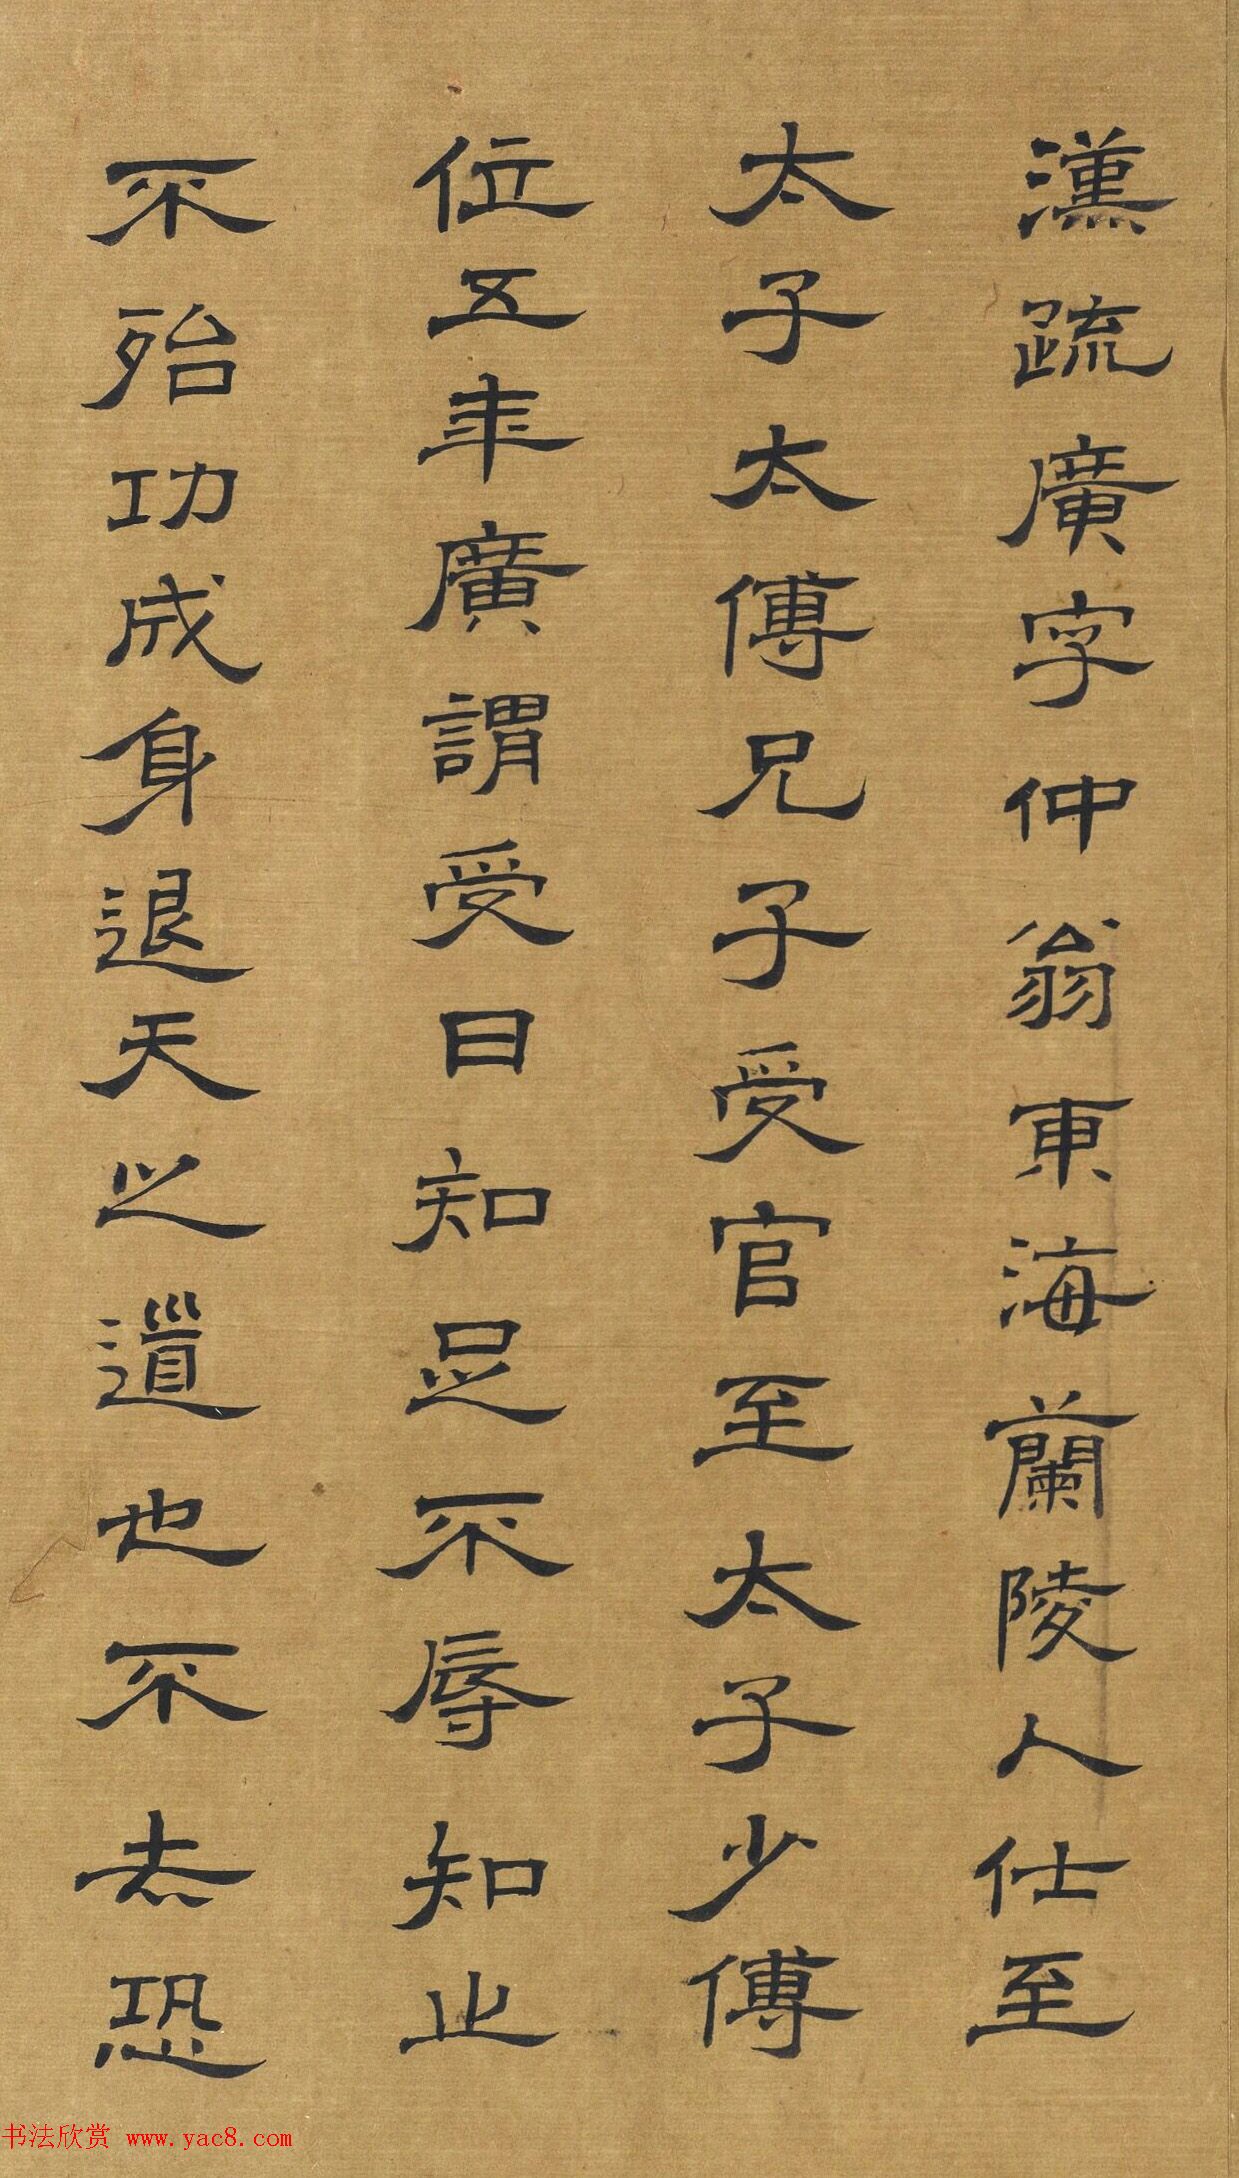 漢疏廣字仲翁東海蘭陵人仕至
太子太傅兄子受官至太子少傅
位五年廣謂受曰知足不辱知止
不殆功成身退天之道也不去恐
书法欣赏 www.yac8.com